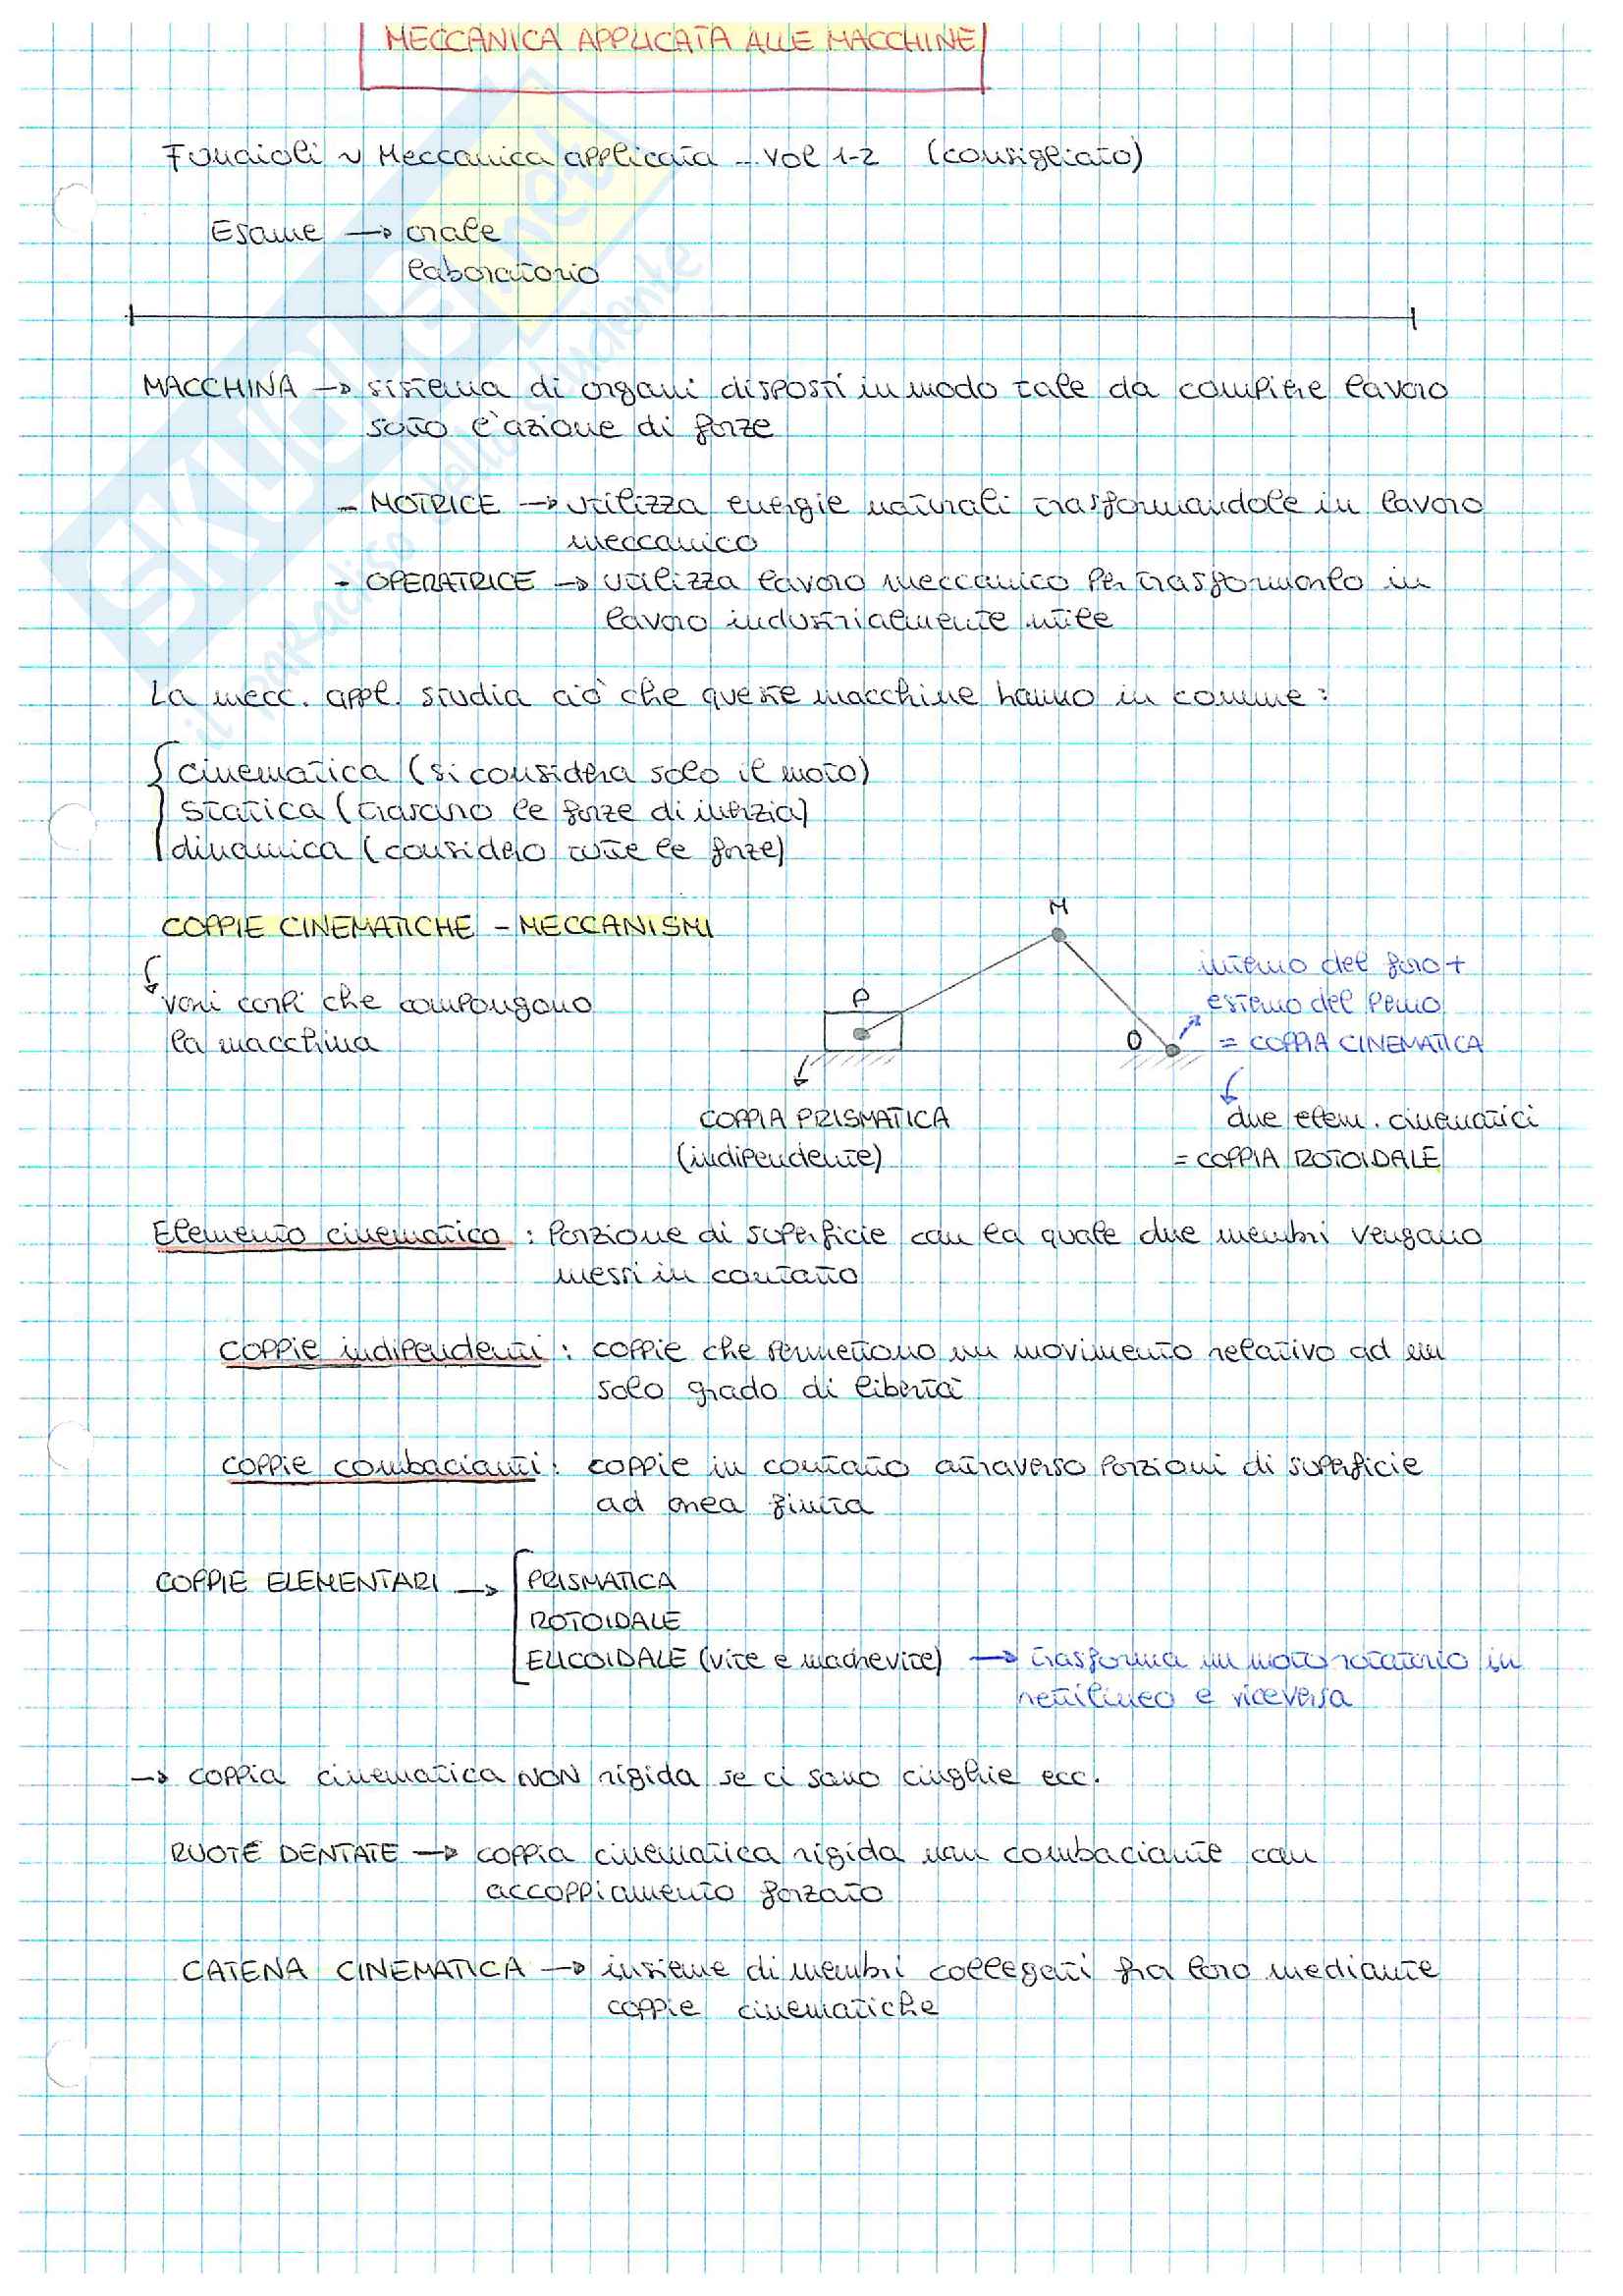 MECCANICA APPLICATA ALLE MACCHINE
Funaioli ~ Meccanica applicata ... vol 1-2 (consigliato)
Esame → orale
laboratorio
MACCHINA → sistema di organi disposti in modo tale da compiere lavoro
sotto l'azione di forze
- MOTRICE → utilizza energie naturali trasformandole in lavoro
meccanico
- OPERATRICE → utilizza lavoro meccanico per trasformarlo in
lavoro industrialmente utile
La mecc. appl. studia ciò che queste macchine hanno in comune:
cinematica (si considera solo il moto)
statica (trascuro le forze di inerzia)
dinamica (considero tutte le forze)
COPPIE CINEMATICHE - MECCANISMI
vari corpi che compongono
la macchina
M
P
O
interno del foro +
esterno del perno
= COPPIA CINEMATICA
COPPIA PRISMATICA
(indipendente)
due elem. cinematici
= COPPIA ROTOIDALE
Elemento cinematico : porzione di superficie con la quale due membri vengono
messi in contatto
coppie indipendenti : coppie che permettono un movimento relativo ad un
solo grado di libertà
coppie combacianti : coppie in contatto attraverso porzioni di superficie
ad area finita
COPPIE ELEMENTARI → PRISMATICA
ROTOIDALE
ELICOIDALE (vite e madrevite) → trasforma un moto rotatorio in
rettilineo e viceversa
→ coppia cinematica NON rigida se ci sono cinghie ecc.
RUOTE DENTATE → coppia cinematica rigida non combaciante con
accoppiamento forzato
CATENA CINEMATICA → insieme di membri collegati fra loro mediante
coppie cinematiche